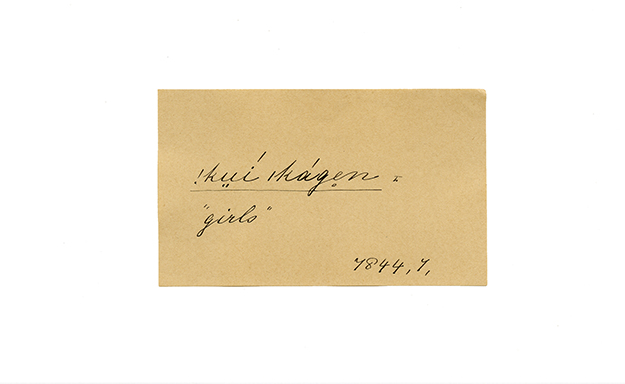 !kṳí ǀkágẹn =
"girls"
7844, 7,